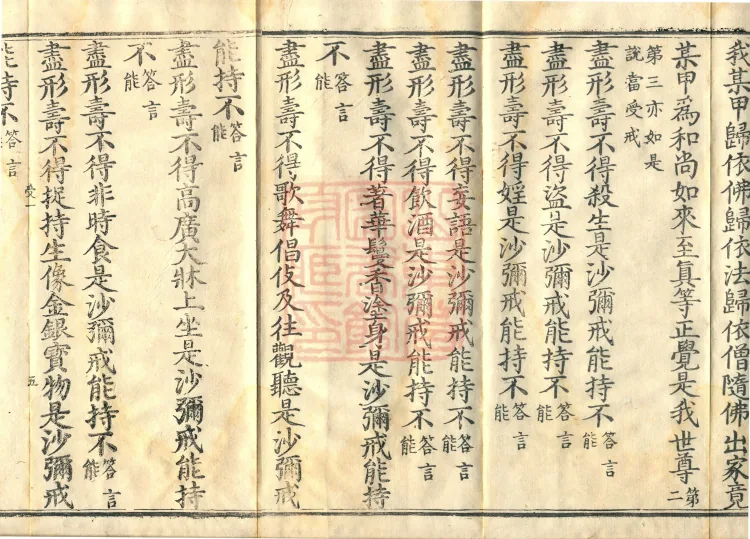 我某甲歸依佛歸依法歸依僧隨佛出家竟
某甲為和尚如來至真等正覺是我世尊第二
第三亦如是說當受戒
盡形壽不得殺生是沙彌戒能持不答言能
盡形壽不得盜是沙彌戒能持不答言能
盡形壽不得婬是沙彌戒能持不答言能
盡形壽不得妄語是沙彌戒能持不答言能
盡形壽不得飲酒是沙彌戒能持不答言能
盡形壽不得著華鬘香塗身是沙彌戒能持
不答言能
盡形壽不得歌舞倡伎及往觀聽是沙彌戒
能持不答言能
盡形壽不得高廣大牀上坐是沙彌戒能持
不答言能
盡形壽不得非時食是沙彌戒能持不答言能
受一 五
盡形壽不得捉持生像金銀寶物是沙彌戒
能持不答言能